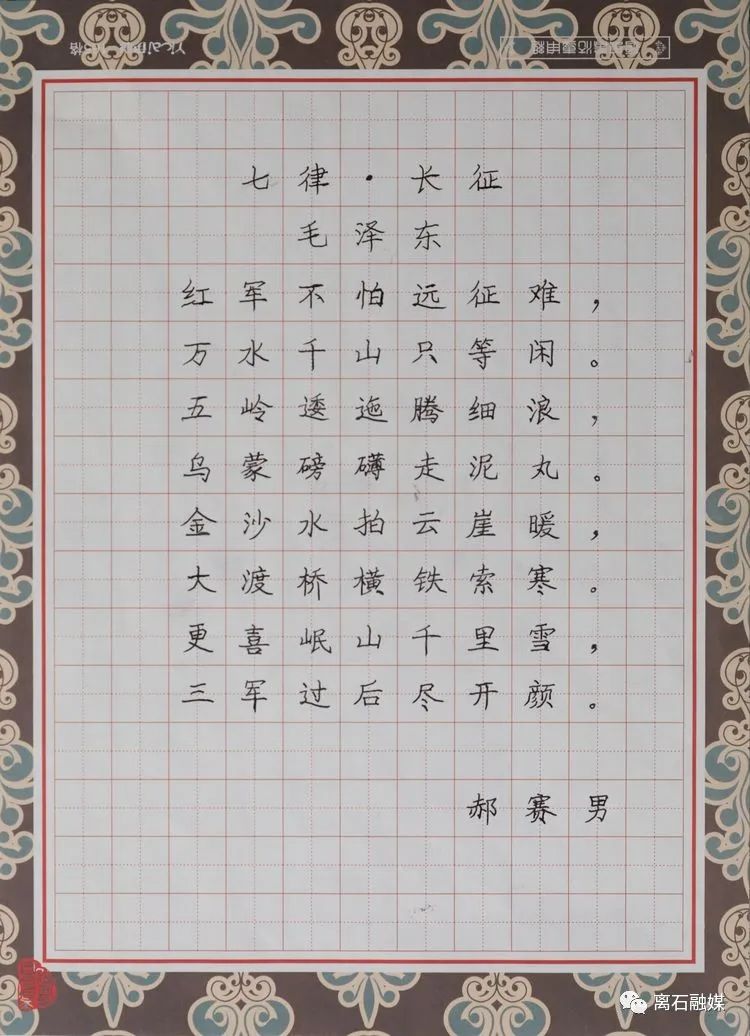 七律·长征
毛泽东
红军不怕远征难，
万水千山只等闲。
五岭逶迤腾细浪，
乌蒙磅礴走泥丸。
金沙水拍云崖暖，
大渡桥横铁索寒。
更喜岷山千里雪，
三军过后尽开颜。
郝赛男
离石融媒